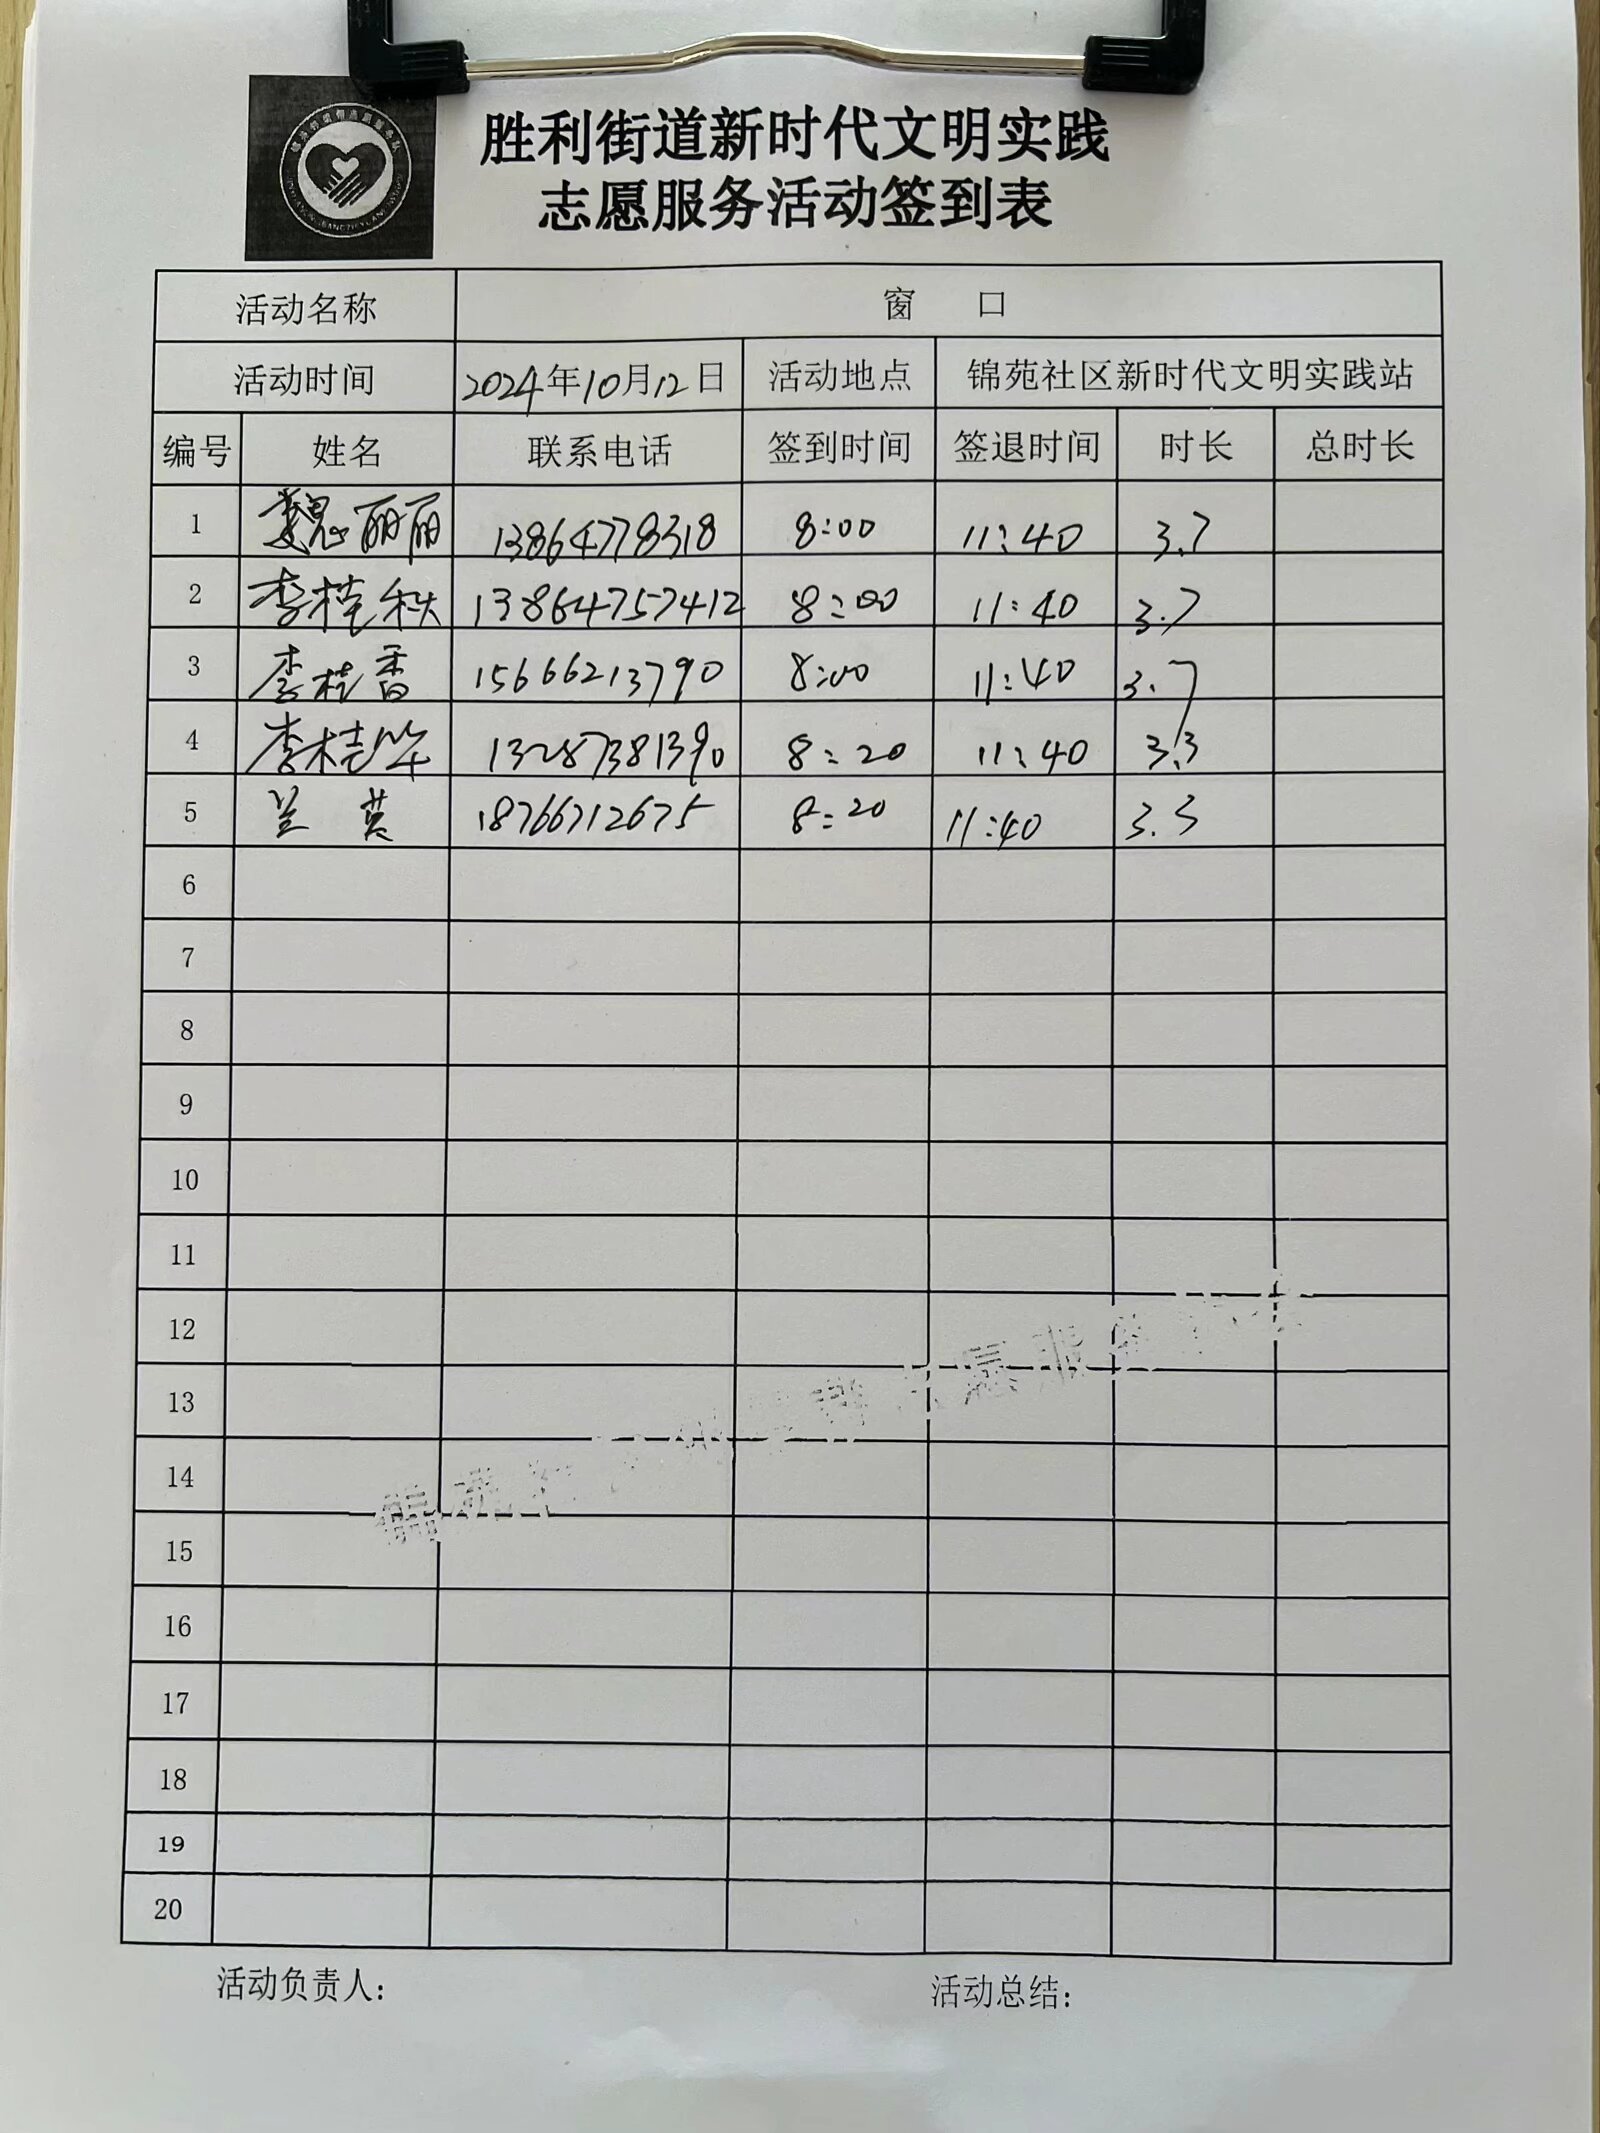 胜利街道新时代文明实践
志愿服务活动签到表
活动名称 窗 口
活动时间 2024年10月12日 活动地点 锦苑社区新时代文明实践站
编号 姓名 联系电话 签到时间 签退时间 时长 总时长
1 魏丽丽 13864778318 8:00 11:40 3.7
2 李桂秋 13864757412 8:00 11:40 3.7
3 李桂香 15666213790 8:00 11:40 3.7
4 李桂华 13287381390 8:20 11:40 3.3
5 兰英 18766712675 8:20 11:40 3.3
6
7
8
9
10
11
12
13
14
15
16
17
18
19
20
活动负责人: 活动总结: